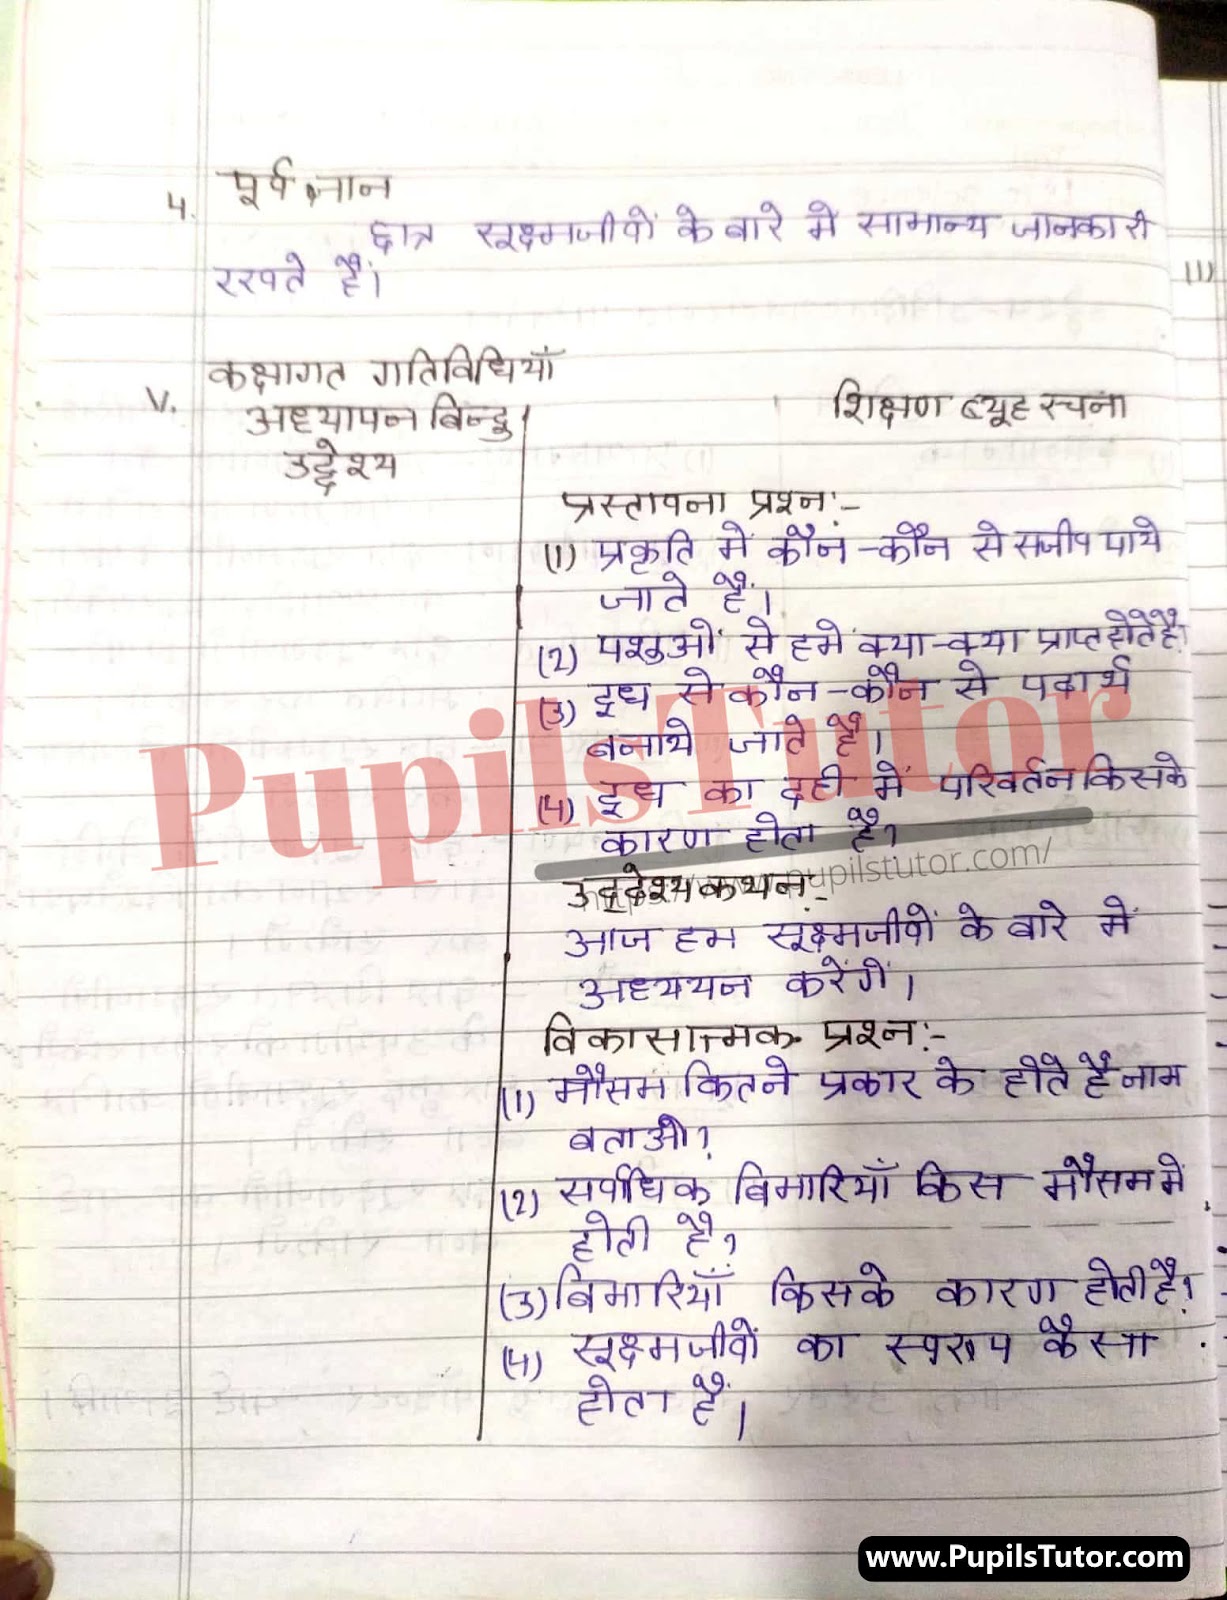 4. पूर्व ज्ञान
छात्र सूक्ष्मजीवों के बारे में सामान्य जानकारी
रखते हैं।
V. कक्षागत गतिविधियाँ
अध्यापन बिन्दु
उद्देश्य
शिक्षण व्यूह रचना
प्रस्तावना प्रश्न:-
(1) प्रकृति में कौन-कौन से सजीव पाये
जाते हैं।
(2) पशुओं से हमें क्या-क्या प्राप्त होते है?
(3) दूध से कौन-कौन से पदार्थ
बनाये जाते हैं।
(4) दूध का दही में परिवर्तन किसके
कारण होता है?
उद्देश्य कथन:-
आज हम सूक्ष्मजीवों के बारे में
अध्ययन करेंगें।
विकासात्मक प्रश्न:-
(1) मौसम कितने प्रकार के होते है नाम
बताओ?
(2) सर्वाधिक बिमारियाँ किस मौसम मे
होती है?
(3) बिमारियाँ किसके कारण होती है?
(4) सूक्ष्मजीवों का स्वरूप कैसा
होता हैं।
III)
PupilsTutor
pupilstutor.com/
www.PupilsTutor.com